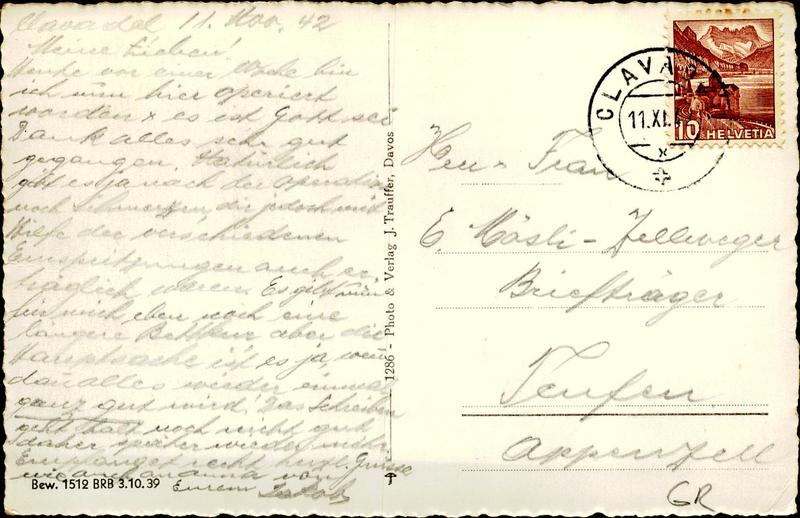 Clavadel 11. Nov. 42
Meine Lieben!
Heute vor einer Woche bin
ich nun hier operiert
worden & es ist Gott sei
Dank alles sehr gut
gegangen. Natürlich
gibt es ja nach der Operation
noch Schmerzen, die jedoch mit
Hilfe der verschiedenen
Einspritzungen auch er-
träglich waren. Es gibt nun
für mich eben noch eine
längere Bettkur aber die
Hauptsache ist es ja, wenn
dann alles wieder einmal
ganz gut wird! Das Schreiben
geht halt noch nicht gut
daher später wieder mehr.
Empfanget recht herzl. Grüsse
wie auch von
Eurem Jakob
Bew. 1512 BRB 3.10.39
1286 - Photo & Verlag J. Trauffer, Davos
CLAVADEL
11.XI.
10 HELVETIA
Herr & Frau
E. Mösli-Zellweger
Briefträger
Teufen
Appenzell
GR